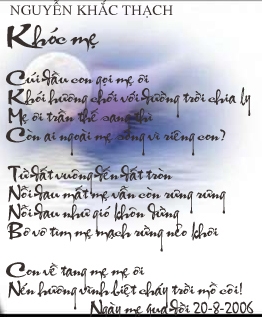 NGUYỄN KHẮC THẠCH
Khóc mẹ
Cúi đầu con gọi mẹ ôi
Khói hương chới với đường trời chia ly
Mẹ ôi trần thế sang thì
Còn ai ngoài mẹ sống vì riêng con?
Từ đất vuông đến đất tròn
Nỗi đau mất mẹ vẫn còn rưng rưng
Nỗi đau như gió khôn dừng
Bơ vơ tìm mẹ mạch rừng nẻo khơi
Con về tang mẹ mẹ ôi
Nén hương vĩnh biệt cháy trời mồ côi!
Ngày mẹ qua đời 20-8-2006